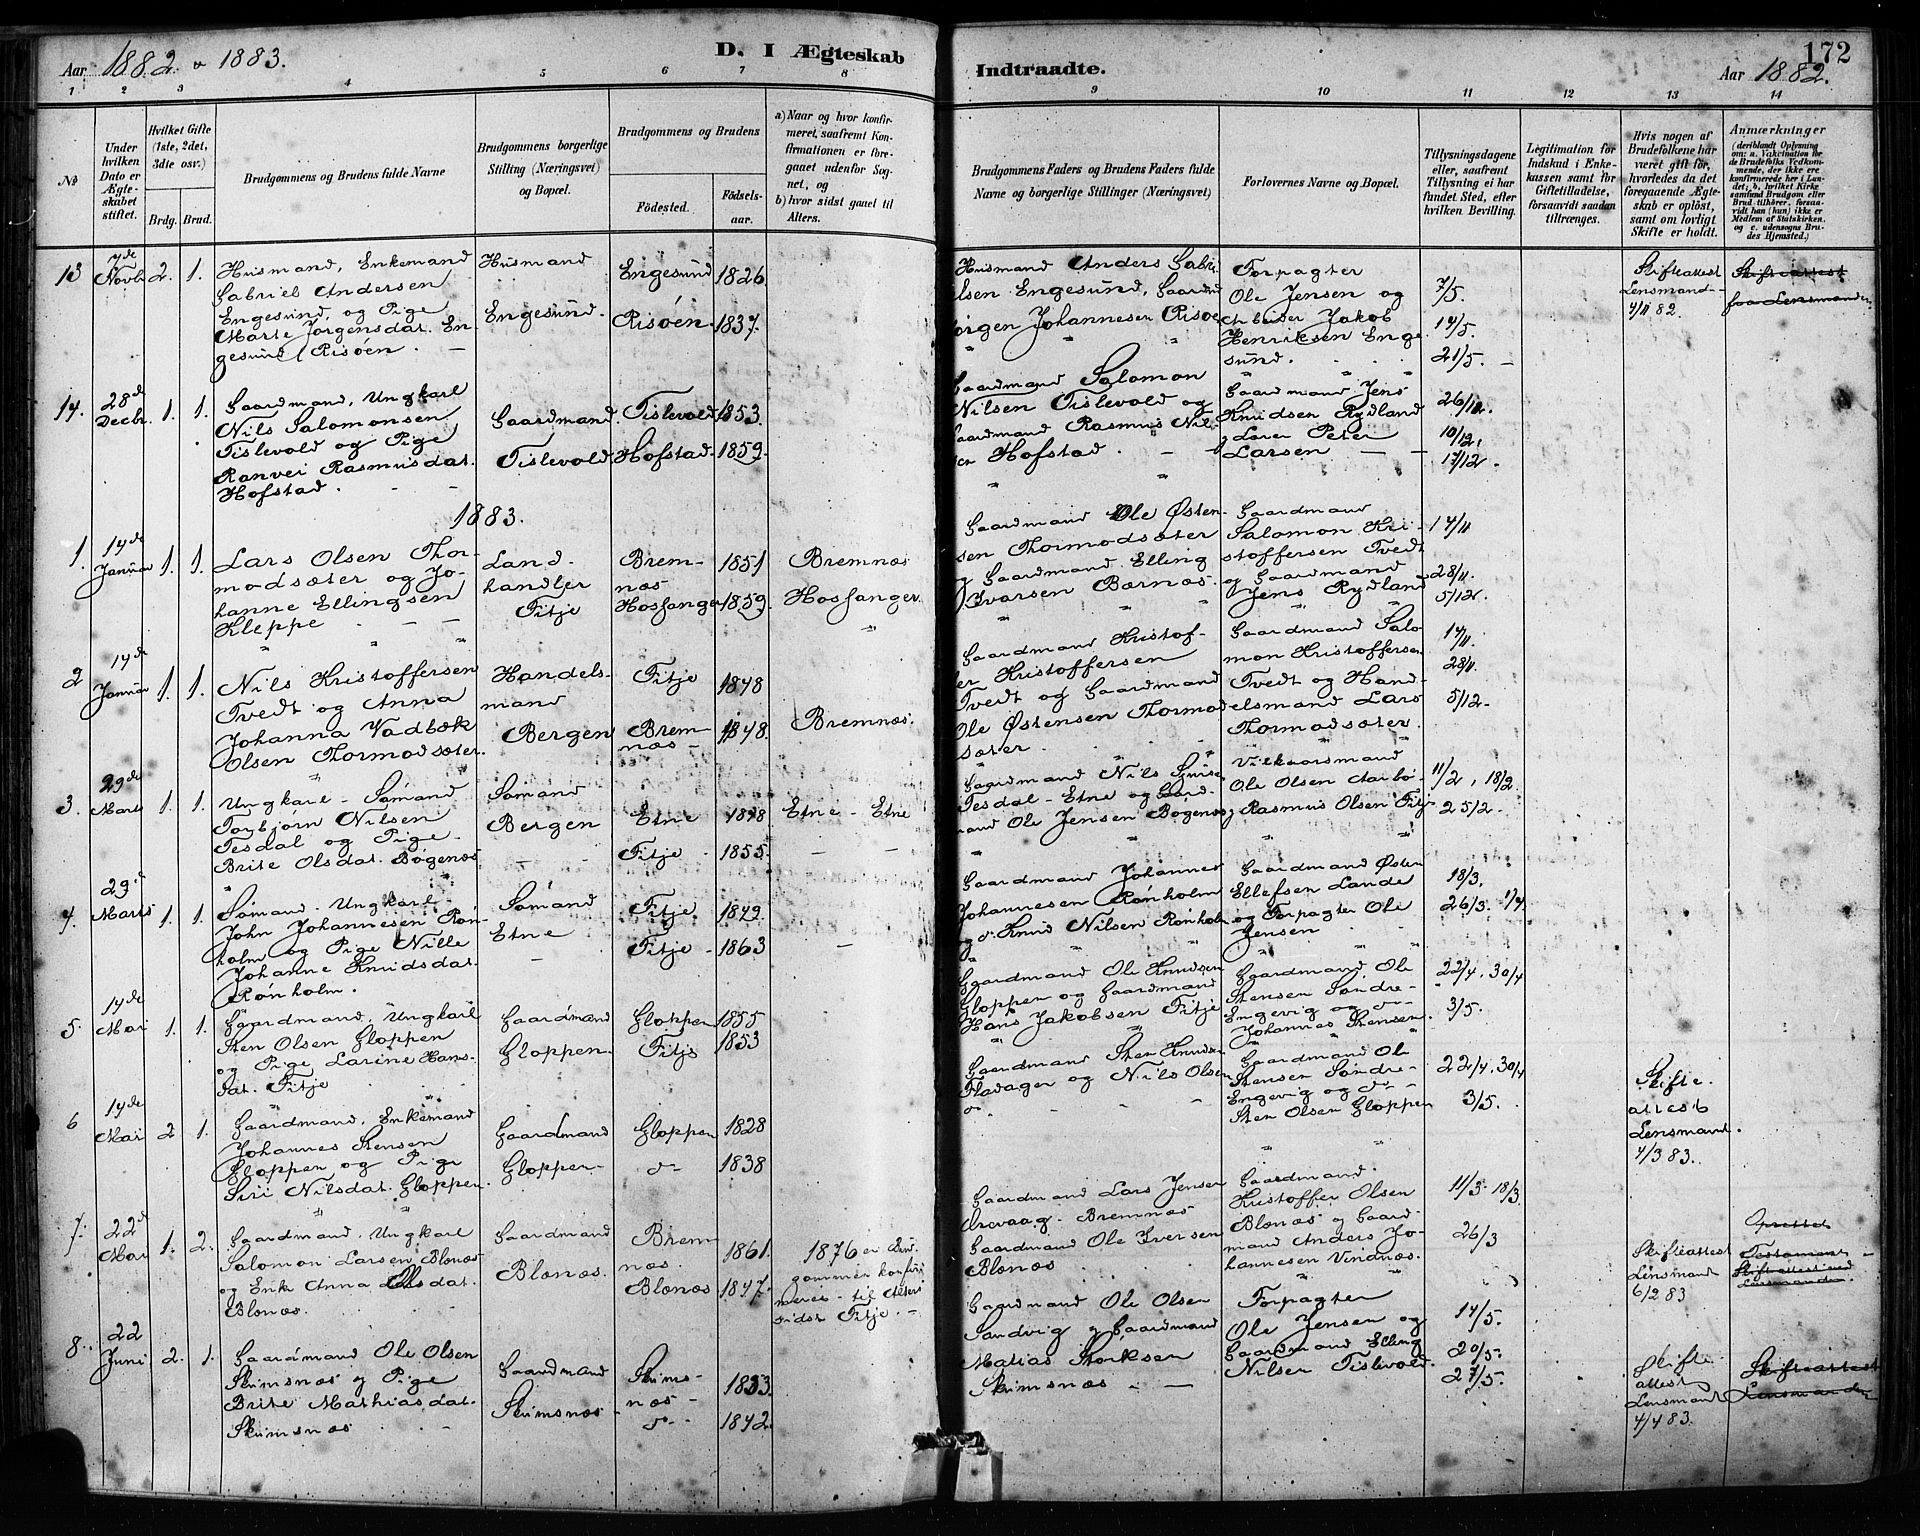 Aar 1882 & 1883.
D. I Ægteskab
Indtraadte.
172
Aar 1882.
1 2 3 4 5 6 7 8
9 10 11 12 13 14
№
Under hvilken Dato er Ægteskabet stiftet.
Hvilket Gifte (1ste, 2det, 3die osv.)
Brdg. Brud.
Brudgommens og Brudens fulde Navne
Brudgommens borgerlige Stilling (Næringsvei) og Bopæl.
Brudgommens og Brudens
Fødested.
Fødselsaar.
a) Naar og hvor konfirmeret, saafremt Konfirmationen er foregaaet udenfor Sognet, og
b) hvor sidst gaaet til Alters.
Brudgommens Faders og Brudens Faders fulde Navne og borgerlige Stillinger (Næringsvei)
Forlovernes Navne og Bopæl.
Tillysningsdagene eller, saafremt Tillysning ei har fundet Sted, efter hvilken Bevilling.
Legitimation for Indskud i Enkekassen samt for Giftetilladelse, forsaavidt saadan tiltrænges.
Hvis nogen af Brudefolkene har været gift før, hvorledes da det foregaaende Ægteskab er opløst, samt om lovligt Skifte er holdt.
Anmærkninger
(deriblandt Oplysning om: a. Vakcination for de Brudefolks Vedkommende, der ikke ere konfirmerede her i Landet; b. hvilket Kirkesamfund Brudgom eller Brud tilhører, forsaavidt han (hun) ikke er Medlem af Statskirken, og c. udensogns Brudes Hjemsted.)
13 7de Novbr 2. 1.
Husmand, Enkemand
Gabriel Andersen
Engesund, og Pige
Marte Jørgensdat. En-
gesund / Risøen. —
Husmand
Engesund.
Engesund 1826
Risøen. 1837.
Husmand Anders Gabri-
elsen Engesund, Gaardmd
Jørgen Johannesen Risøen
Forpagter
Ole Jensen og
Arbeider Jakob
Henriksen Enge
sund.
7/5.
14/5.
21/5. —
Skifteattest
Lensmand-
4/11 82.
Skifteattest
fra Lensmanden
14. 28de Decbr. 1. 1.
Gaardmand, Ungkarl
Nils Salomonsen
Tislevold og Pige
Ranvei Rasmusdat.
Hofstad. - -
Gaardmand.
Tislevold
Tislevold 1853.
Hofstad. 1859.
Gaardmand Salomon
Nilsen Tislevold og
Gaardmand Rasmus Nil-
sen Hofstad. — —
Gaardmand Jens
Knudsen Rydland
og Lærer Peter
Larsen — —
26/11.
10/12.
17/12 -
1883.
1. 14de Januar 1. 1.
Lars Olsen Thor-
modsæter og Jo-
hanne Ellingsen
Kleppe - —
Land-
handler
Fitje
Brem-
næs 1851
Hosfanger 1859.
Bremnæs
Hosfanger
Gaardmand Ole Østen-
sen Thormodsæter
og Gaardmand Elling
Ivarsen Bærnæs.
Gaardmand
Salomon Kri-
stoffersen Tvedt
og Gaardmand
Jens Rydland
14/11
28/11.
5/12.
2 14de Januar 1. 1.
Nils Kristoffersen
Tvedt og Anna
Johanna Vadbæk
Olsen Thormodsæter.
Handels-
mand
Bergen
Fitje 1848
Brem-
næs - 1848.
Bremnæs.
Gaardmand Kristof-
fer Kristoffersen
Tvedt og Gaardmand
Ole Østensen Thormod
sæter.
Gaardmand Salo-
mon Kristoffersen
Tvedt og Hand-
elsmand Lars
Thormodsæter.
14/11.
28/11.
5/12-
3. 29de Marts 1. 1.
Ungkarl - Sømand
Torbjørn Nilsen
Tesdal og Pige
Brite Olsdat. Bøgenæs
Sømand
Bergen
Etne 1848
Fitje 1855.
Etne - Etne
Gaardmand Nils
Tesdal - Etne og Gård-
mand Ole Jensen Bøgenæs
Vilkaarsmand
Ole Olsen Aarbø-
og Rasmus Olsen Fitje
11/2, 18/2
25/2.
4. 29de Marts 1. 1.
Sømand - Ungkarl -
John Johannesen Røn-
holm og Pige Nille
Johanne Knudsdat.
Rønholm.
Sømand
Etne
Fitje. 1849.
Fitje - 1863
Gaardmand Johannes
Johannesen Rønholm
og do Knud Nilsen Rønholm
Gaardmand Østen
Ellefsen Lande
og Forpagter Ole
Jensen
18/3.
26/3. 1/4
5. 14de Mai 1. 1.
Gaardmand, Ungkarl
Sten Olsen Gloppen
og Pige Larine Hans-
dat. Fitje
Gaardmand
Gloppen -
Gloppen 1855
Fitje 1853
Gaardmand Ole Knudsen
Gloppen og Gaardmand
Hans Jakobsen Fitje
Gaardmand Ole
Stensen Søndre-
Engevig og do
Johannes Stensen.
22/4. 30/4
3/5.
6 14de Mai 2. 1.
Gaardmand, Enkemand
Johannes Stensen
Gloppen og Pige
Siri Nilsdat. Gloppen.
Gaardmand
Gloppen -
Gloppen 1828
do 1838
Gaardmand Sten Knudsen
Fladager og Nils Olsen
do
Gaardmand Ole
Stensen Søndre-
Engevig og do
Sten Olsen Gloppen
22/4. 30/4
3/5.
Skifte-
attest
Lensmand.
4/3 83.
7. 22de Mai 1. 2.
Gaardmand, Ungkarl
Salomon Larsen Blønæs
og Enke Anna Olsdat.
Blønæs.
Gaardmand
Blønæs.
Brem-
næs. 1861.
Blønæs 1847.
1876 er Brud-
gommen konfir
meret - til Alters
sidst Fitje. -
Gaardmand Lars Jensen
Grovaag - Bremnæs
Gaardmand Ole Iversen
Blønæs
Gaardmand.
Kristoffer Olsen
Blønæs og Gaard-
mand Anders Jo-
hannesen Vindnæs.
11/3 - 18/3
26/3
Skifteattest
Lensmand
6/2 83
Oprettet
Testament
Skifteattest ved
Lensmanden.
8. 22 Juni 2. 1.
Gaardmand Ole Olsen
Skimsnæs og Pige
Brite Mathiasdat.
Skimsnæs -
Gaardmand
Skimsnæs
Skims-
næs - 1833.
do - 1842.
Gaardmand Ole Olsen
Sandvig og Gaardmand
Matias Storksen
Skimsnæs - —
Forpagter
Ole Jensen og
Gaardmand Elling
Nilsen Tislevold.
14/5.
20/5-
27/5.
Skifte-
attest
Lensmand
4/4 83.
Skifteattest
Lensmanden